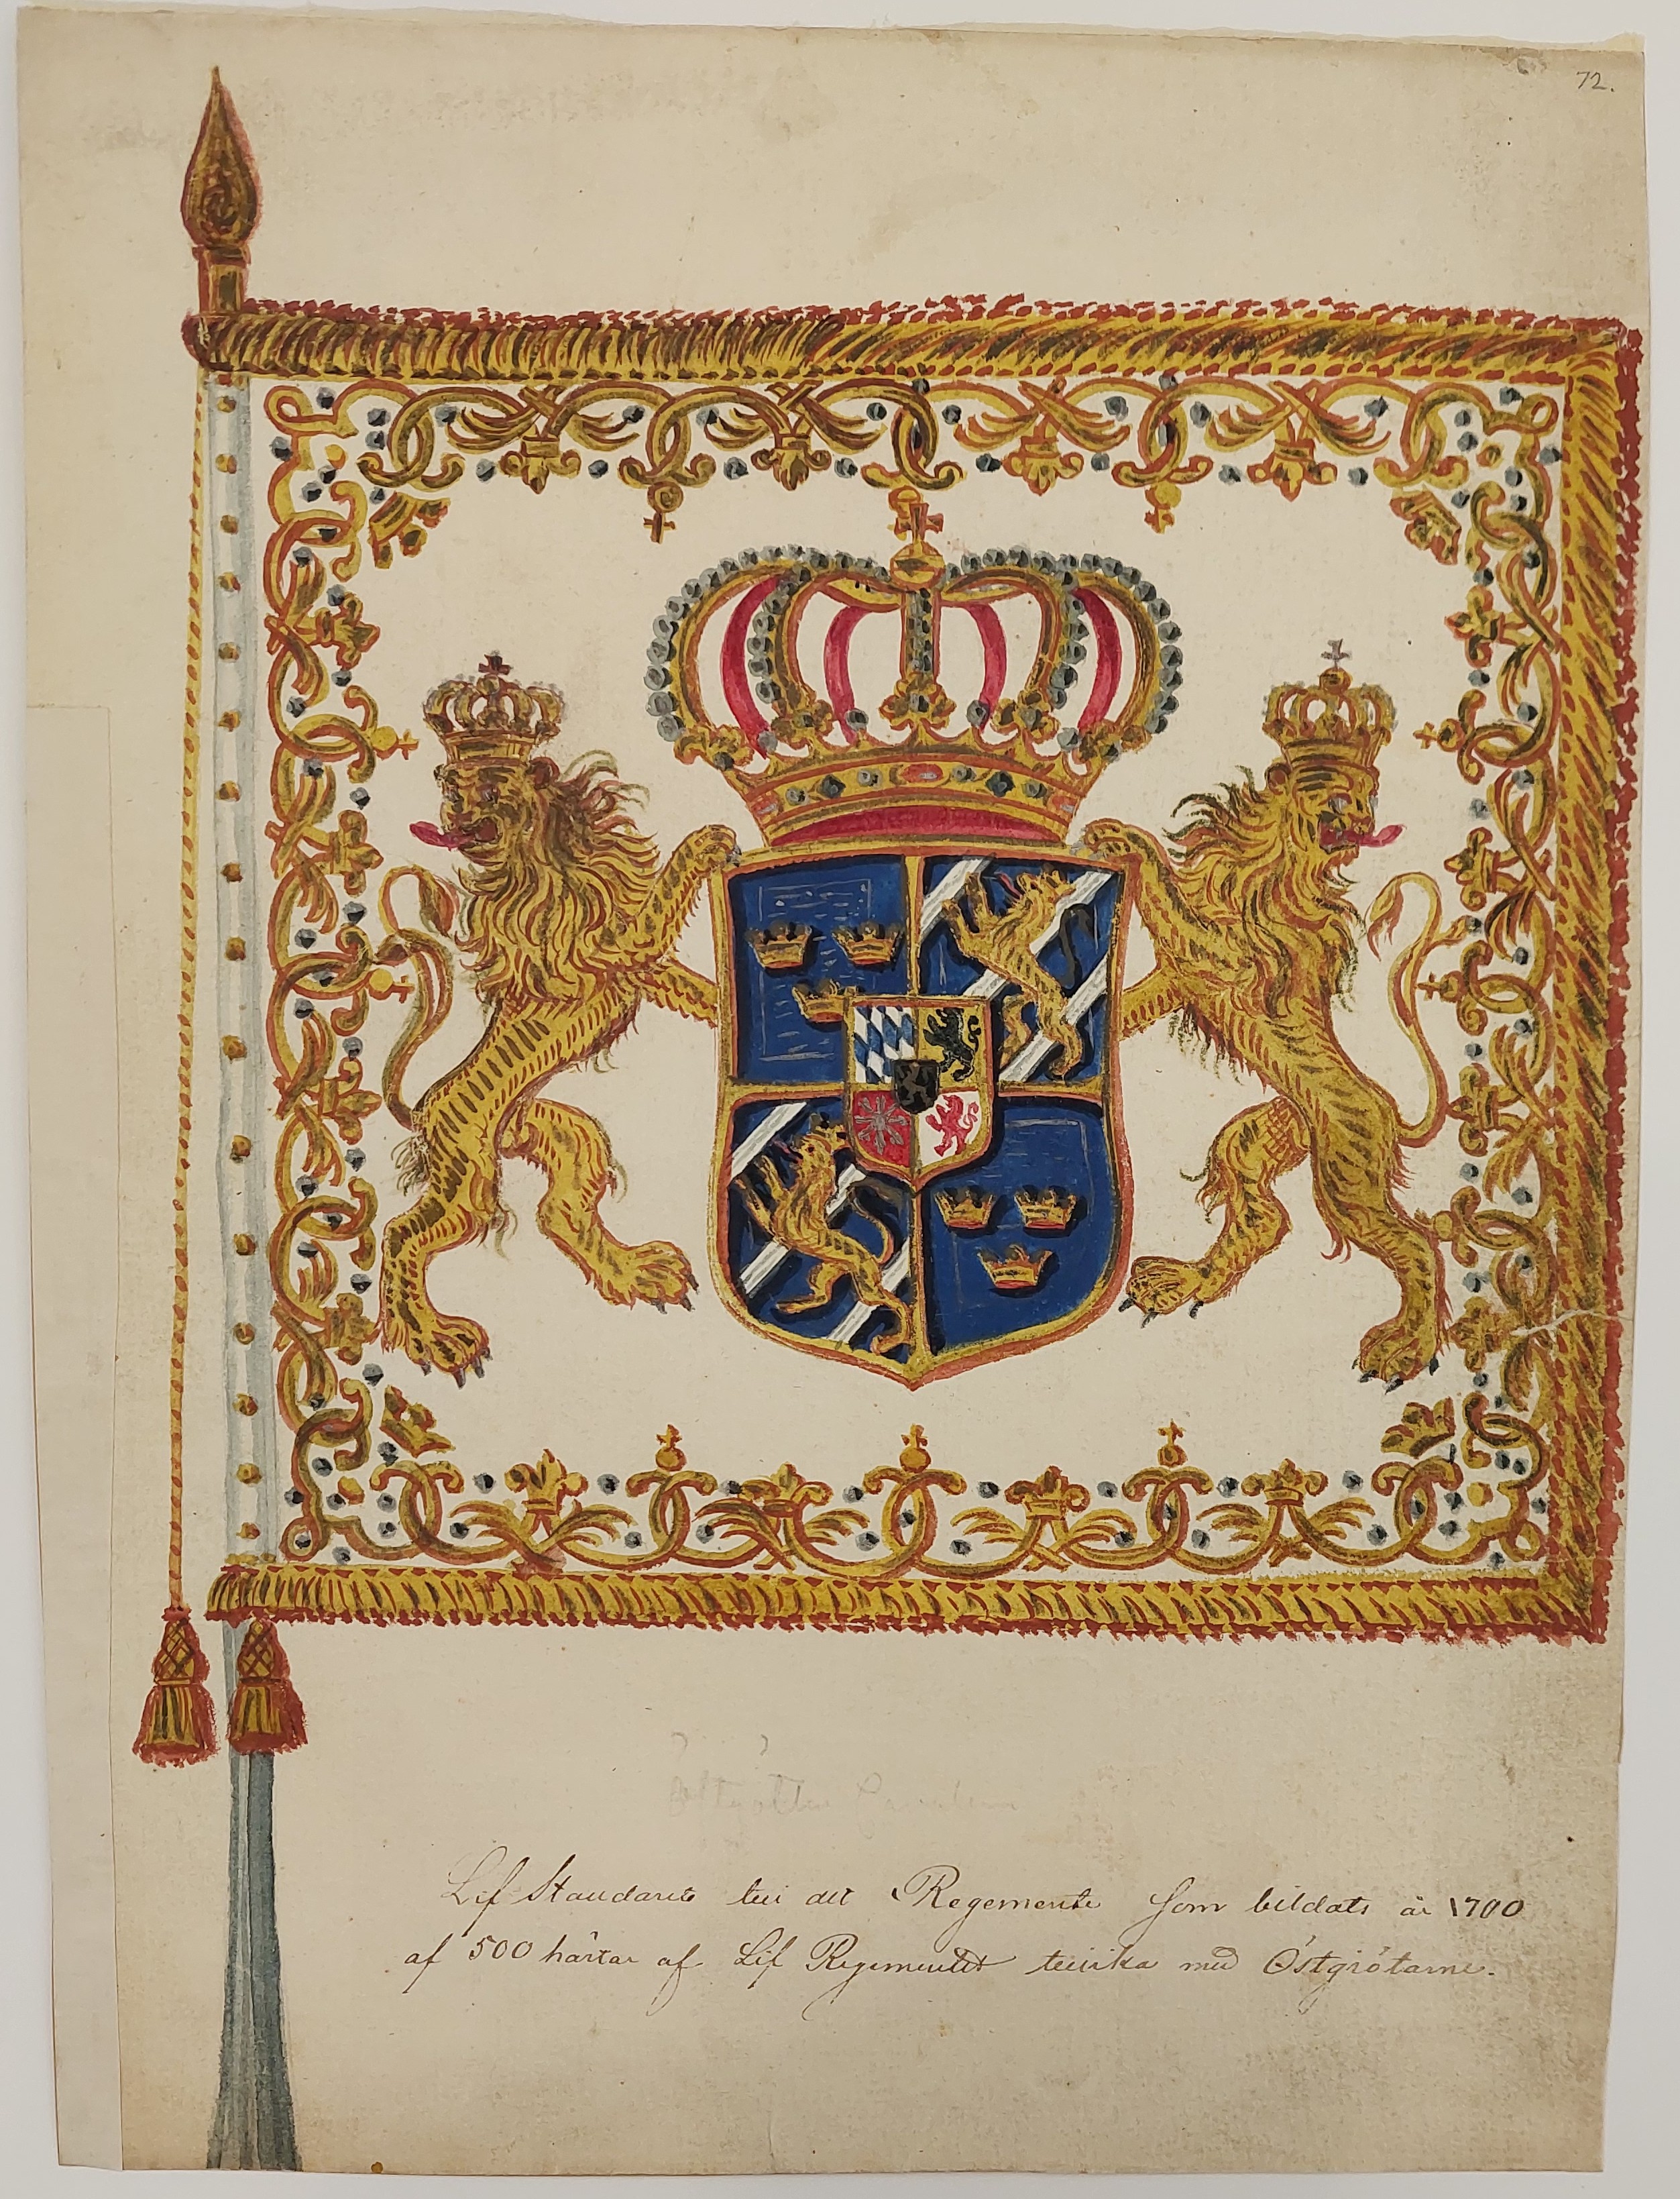 72.
Lif Standaret til det Regemente Som bildats år 1700
af 500 hästar af Lif Regementet med Östgiötarne.